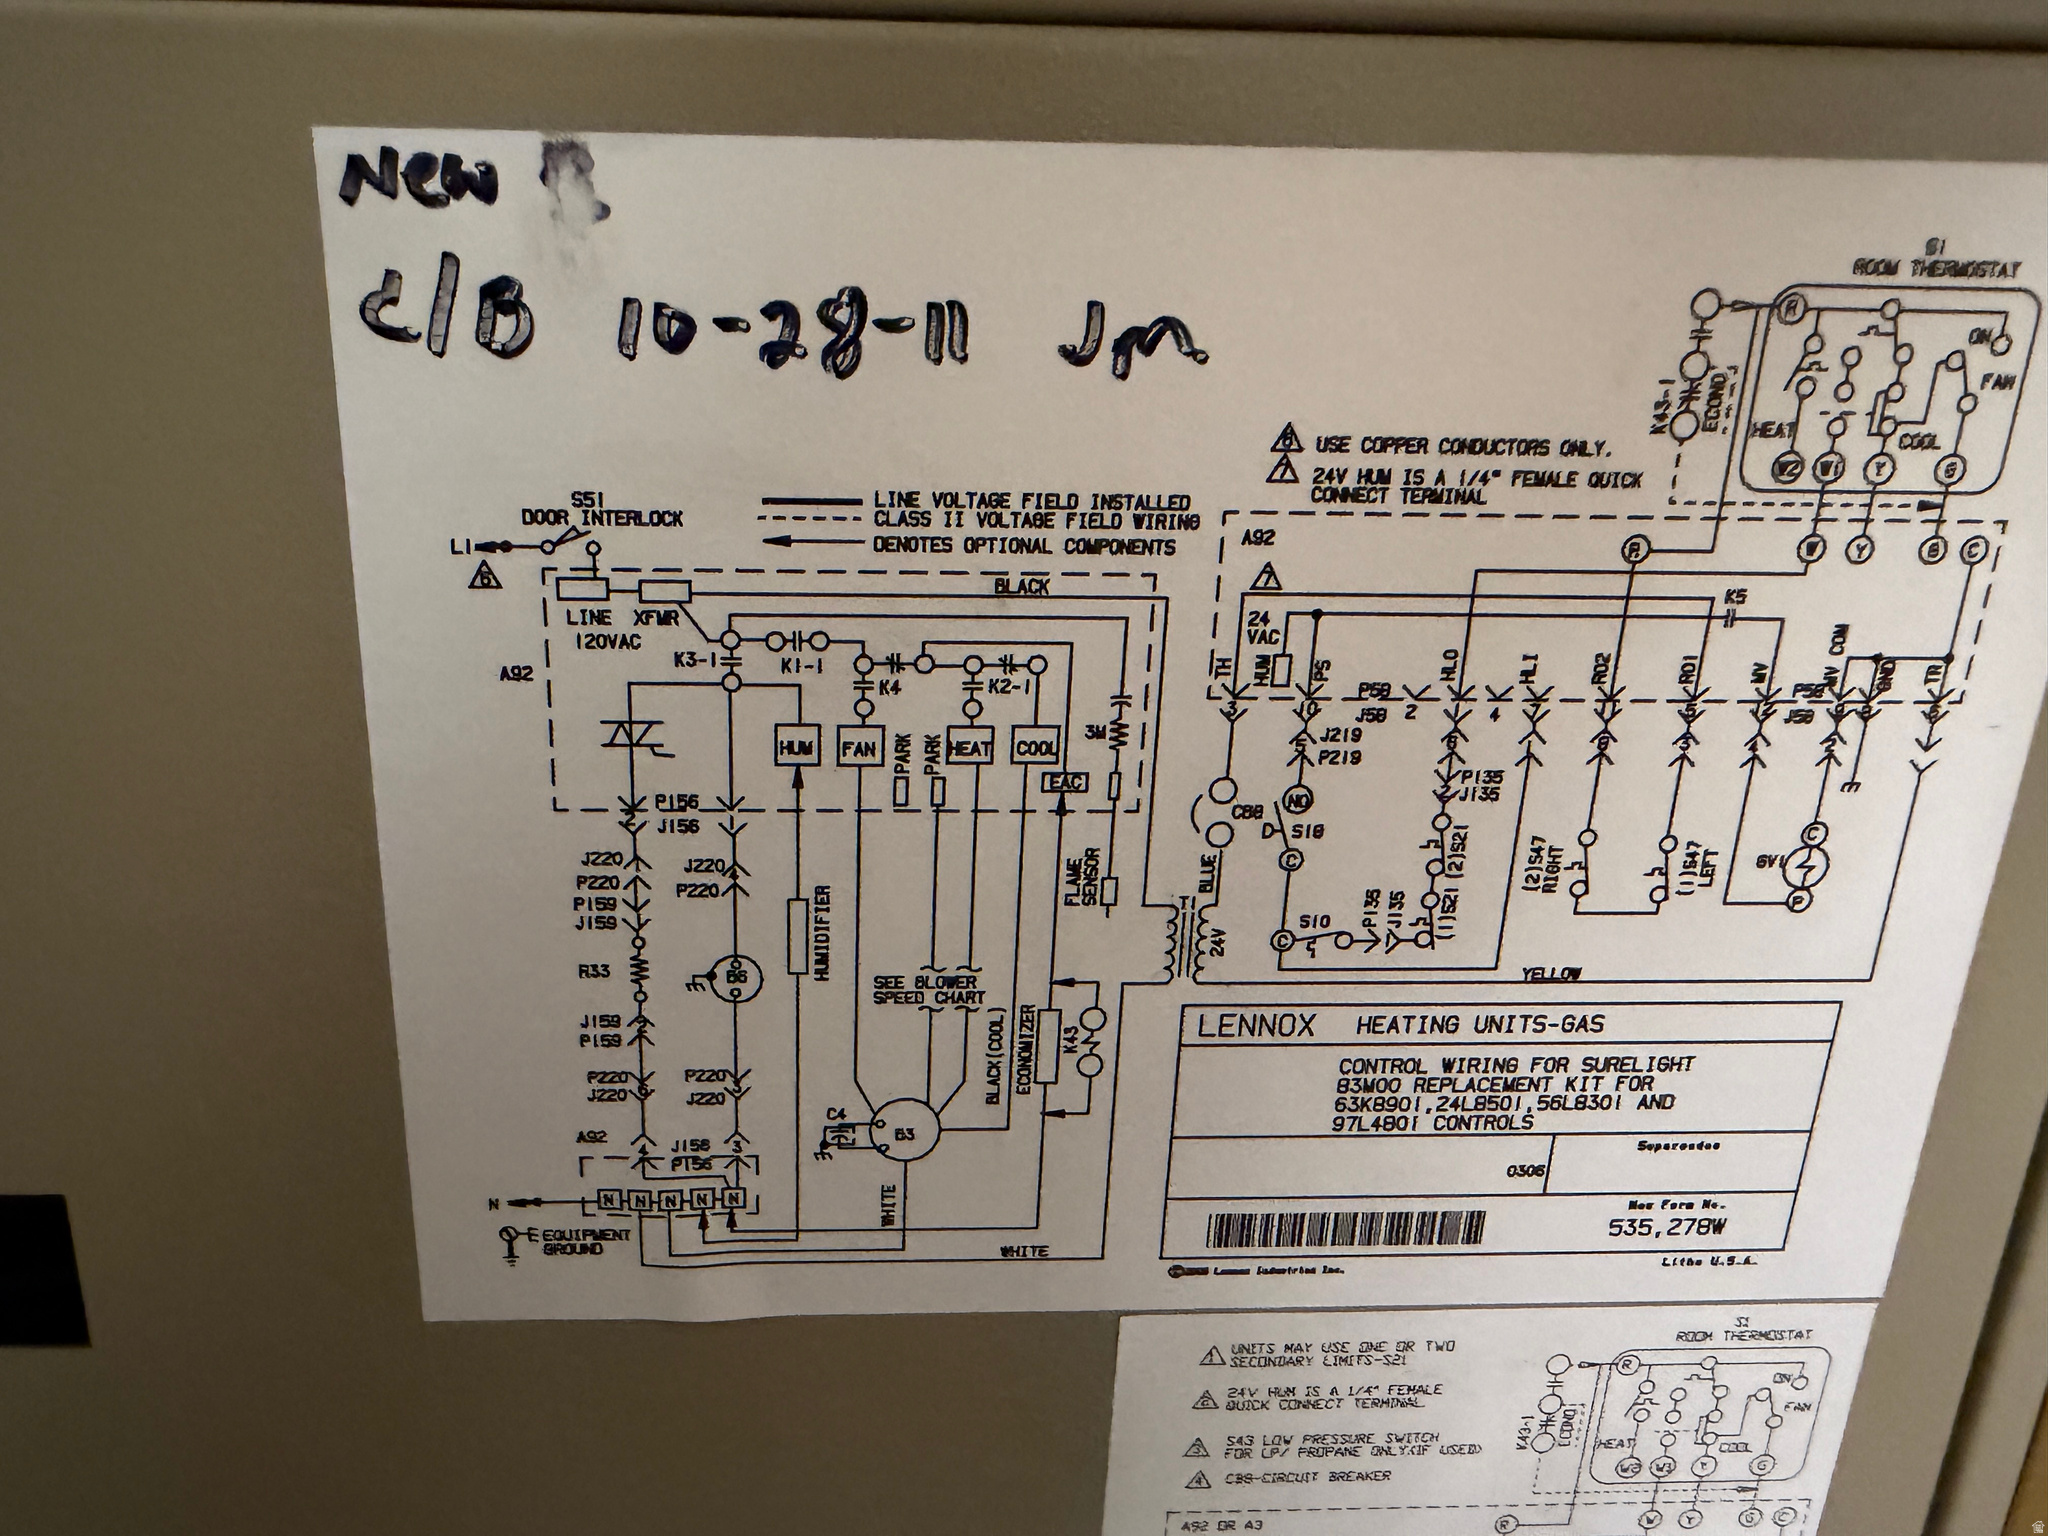 New
C/B 10-28-11 Jm
S1
ROOM THERMOSTAT
ON
FAN
HEAT
COOL
K43-1
ECONO
R
W2 W1 Y G
6 USE COPPER CONDUCTORS ONLY.
7 24V HUM IS A 1/4" FEMALE QUICK
CONNECT TERMINAL
S51
DOOR INTERLOCK
L1
6
LINE VOLTAGE FIELD INSTALLED
CLASS II VOLTAGE FIELD WIRING
DENOTES OPTIONAL COMPONENTS
A92
R W Y G C
7
BLACK
LINE XFMR
120VAC
24
VAC
K5
A92
K3-1
K1-1
K4
K2-1
TH HUM PS HLO HLI RO2 RO1 MV MV COM GND TR
HUM FAN PARK PARK HEAT COOL EAC
3M
P58
J58
2
4
J58
J219
P219
P156
J156
P135
J135
NO
CB8
S18
C
J220
P220
P159
J159
J220
P220
HUMIDIFIER
FLAME
SENSOR
BLUE
(2)S21
(1)S21
(2)S47
RIGHT
(1)S47
LEFT
GV1
C
P
T1
24V
S10
C
P135
J135
YELLOW
R33
B6
SEE BLOWER
SPEED CHART
BLACK(COOL)
ECONOMIZER
K43
J159
P159
P220
J220
P220
J220
C4
B3
A92
J156
P156
N
N N N N N
WHITE
EQUIPMENT
GROUND
WHITE
LENNOX HEATING UNITS-GAS
CONTROL WIRING FOR SURELIGHT
83M00 REPLACEMENT KIT FOR
63K8901,24L8501,56L8301 AND
97L4801 CONTROLS
Supersedes
0306
New Form No.
535,278W
Lennox Industries Inc.
Litho U.S.A.
1 UNITS MAY USE ONE OR TWO
SECONDARY LIMITS-S21
24V HUM IS A 1/4" FEMALE
QUICK CONNECT TERMINAL
3 S43 LOW PRESSURE SWITCH
FOR LP/ PROPANE ONLY.(IF USED)
4 CB8-CIRCUIT BREAKER
S1
ROOM THERMOSTAT
R
ON
FAN
K43-1
ECONO
HEAT
COOL
W2 W1 Y G
A92 OR A3
R W Y G C